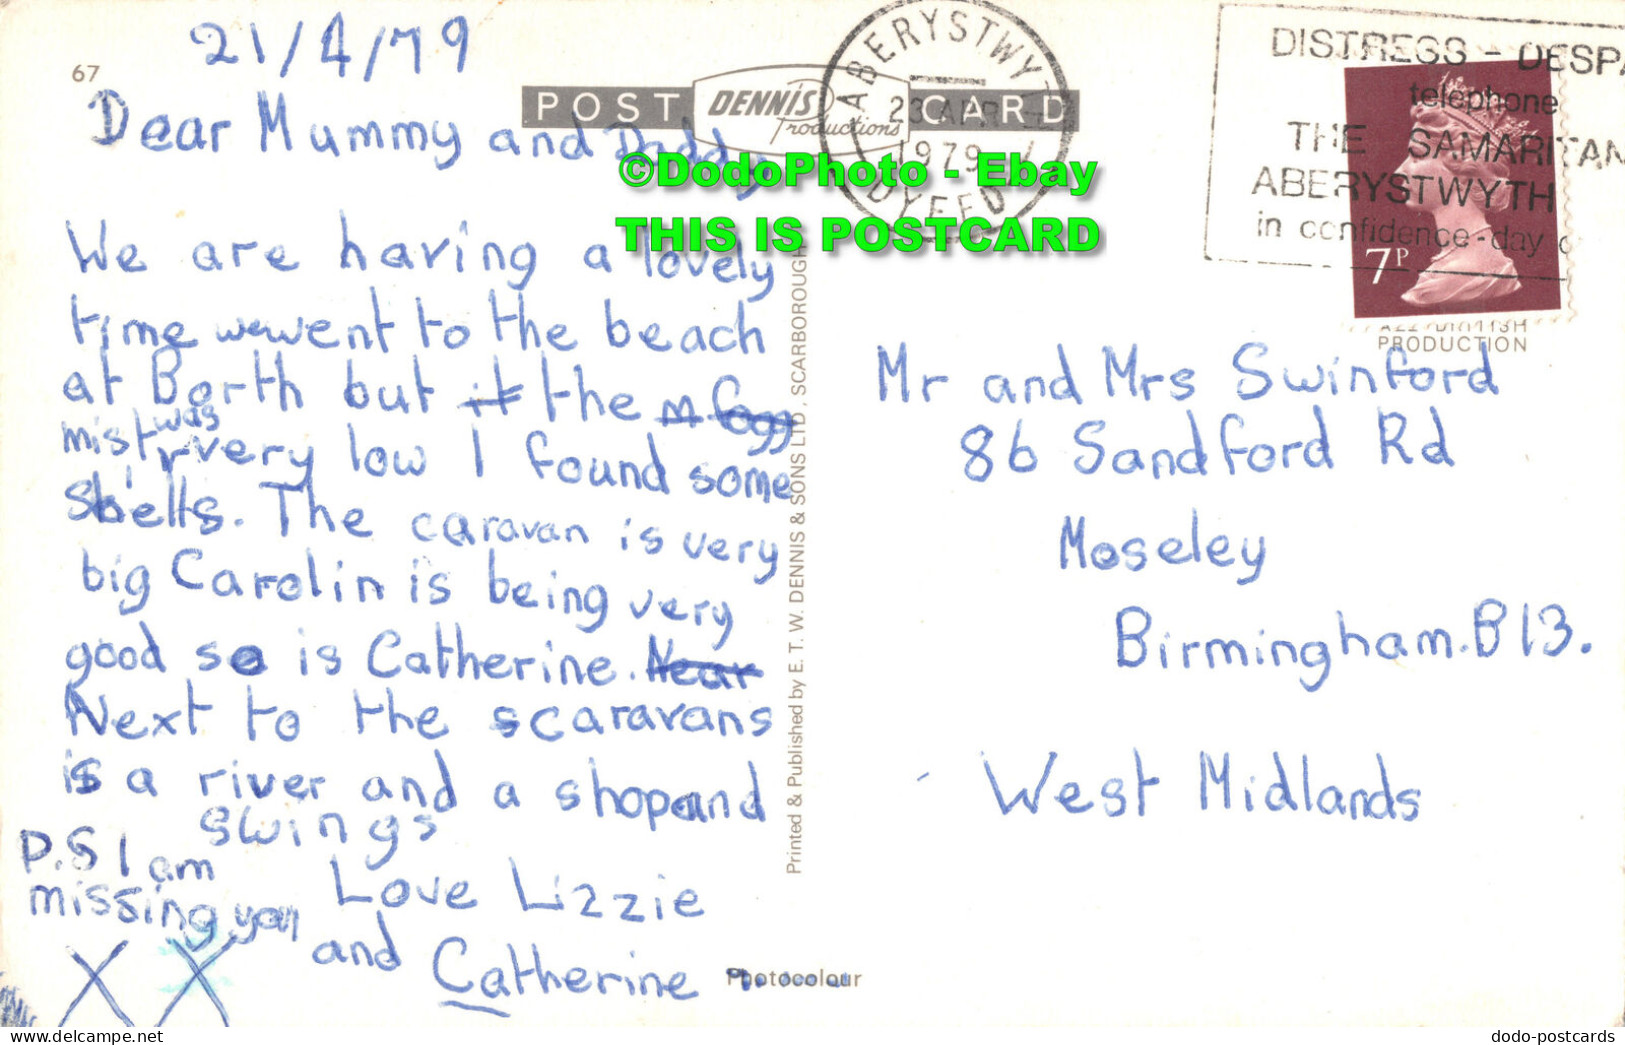 67
21/4/79
POST DENNIS Productions CARD
Dear Mummy and Daddy
We are having a lovely
time wewent to the beach
at Borth but it the m. fogg
misty was very low I found some
shells. The caravan is very
big Carolin is being very
good so is Catherine. Near
Next to the scaravans
is a river and a shopand
swings
P.S I am
missing you
Love Lizzie
and Catherine
X X
Printed & Published by E. T. W. DENNIS & SONS LTD., SCARBOROUGH
Photocolour
ABERYSTWYTH
23 APR
1979
DYFED
DISTRESS - DESPA
telephone
THE SAMARITAN
ABERYSTWYTH
in confidence-day o
7P
PRODUCTION
Mr and Mrs Swinford
86 Sandford Rd
Moseley
Birmingham. B13.
West Midlands
©DodoPhoto - Ebay
THIS IS POSTCARD
www.delcampe.net
dodo-postcards